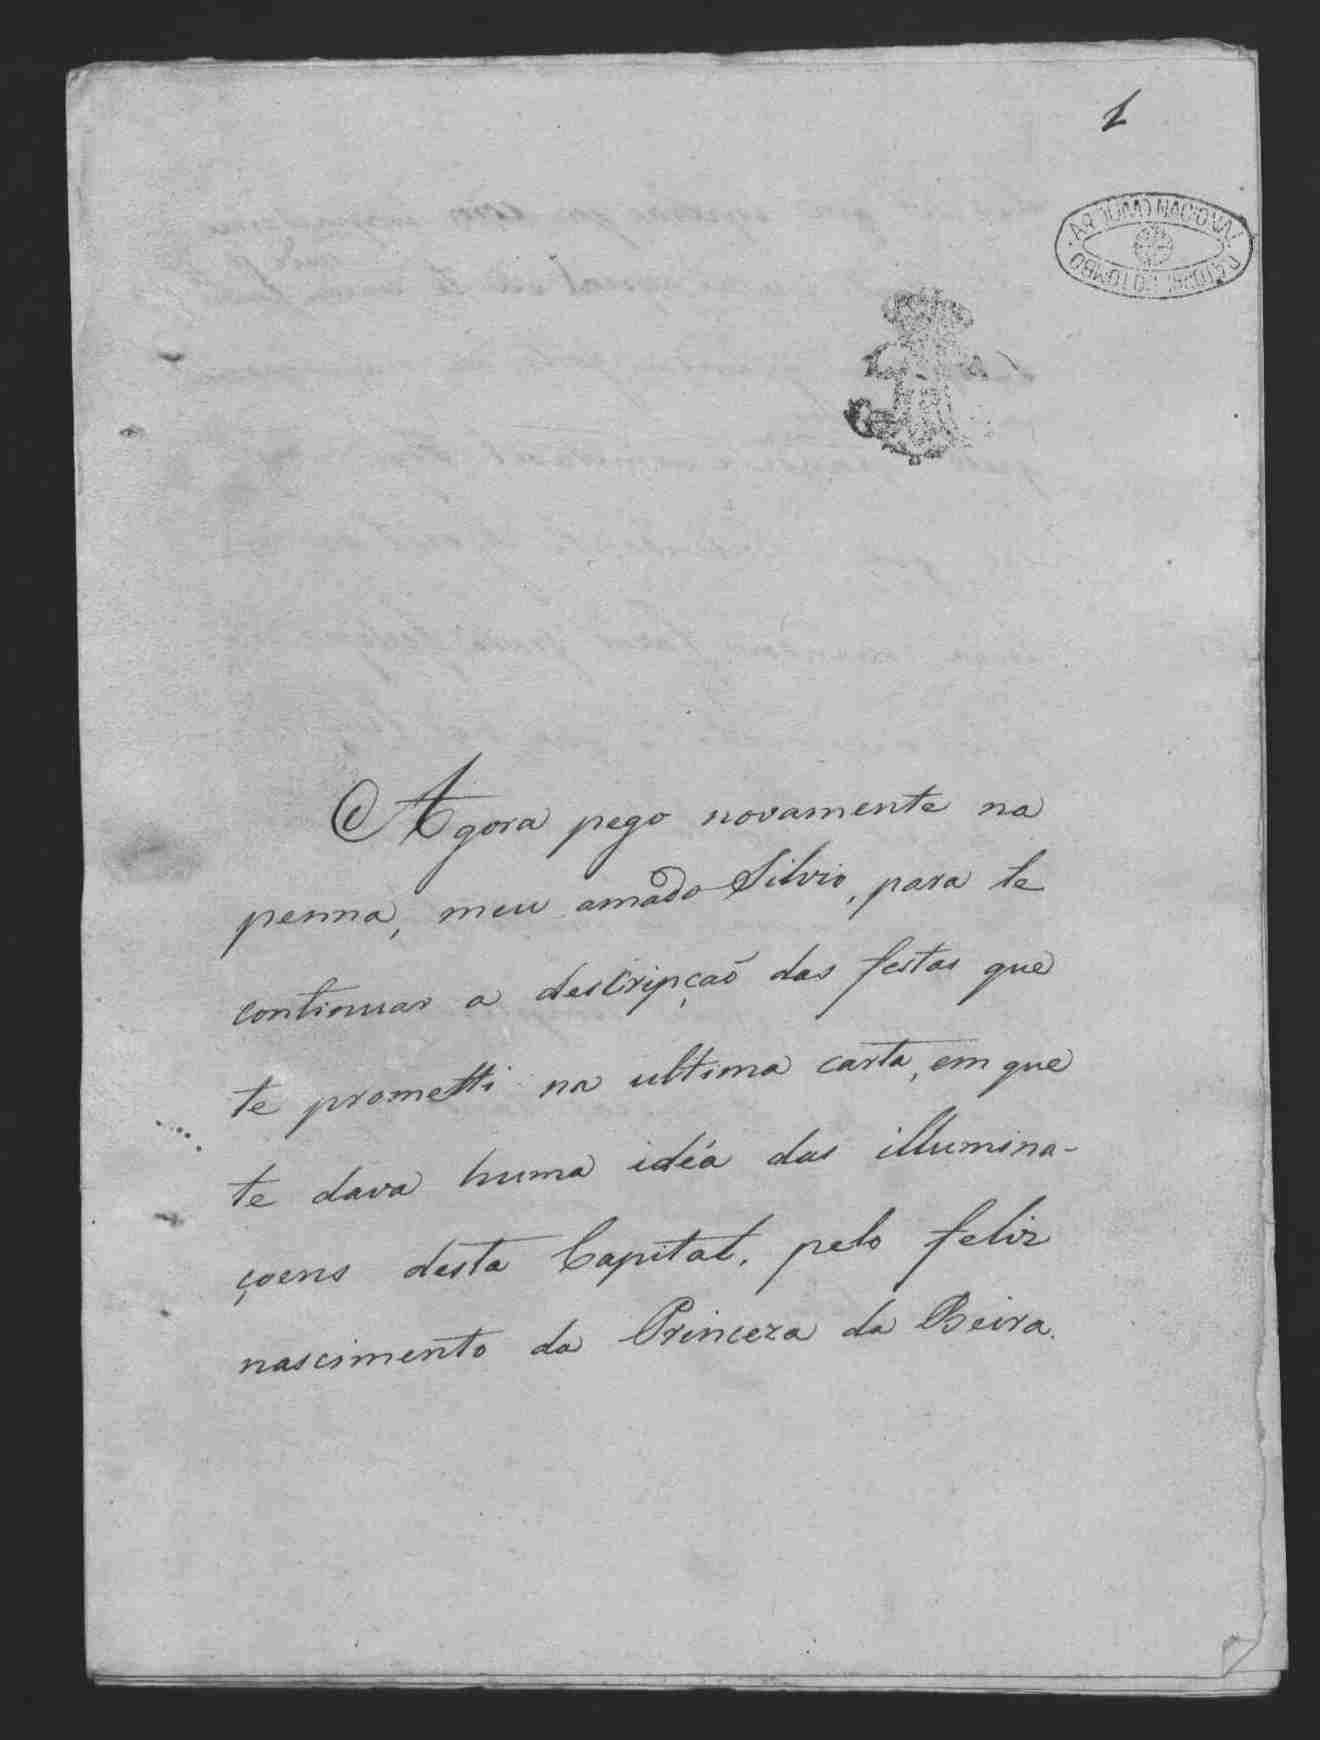 1
ARQUIVO NACIONAL
TORRE DO TOMBO
Agora pego novamente na
penna, meu amado Silvio, para te
continuar a descripçaõ das festas que
te prometti na ultima carta, em que
te dava huma idéa das illumina-
çoens desta Capital, pelo feliz
nascimento da Princeza da Beira.